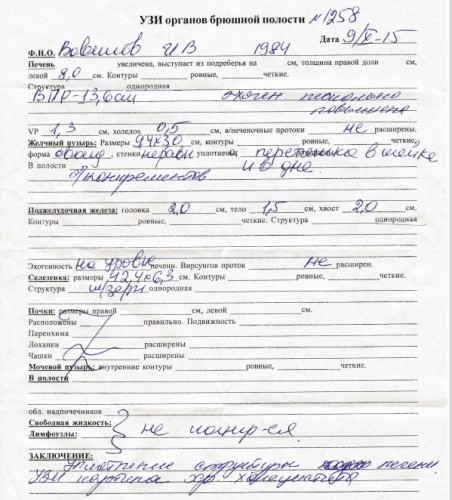 УЗИ органов брюшной полости №1258
Дата 9/X-15
Ф.И.О. Вавилов И.В 1984
Печень увеличена, выступает из подреберья на см, толщина правой доли см,
левой 8,0 см. Контуры ровные, четкие.
Структура однородная
ВПР-13,6см эхоген несколько
повышена
VP 1,3 см, холедох 0,5 см, в/печеночные протоки не расширены.
Желчный пузырь: Размеры см, контуры ровные, четкие,
форма овоид, стенки неравн уплотнены перетяжка в шейке
В полости б/конкрементов и в дне.
Поджелудочная железа: головка 2,0 см, тело 1,5 см, хвост 2,0 см.
Контуры ровные, четкие. Структура однородная
Эхогенность на уровне печени. Вирсунгов проток не расширен.
Селезенка: размеры 12,4х6,3 см. Контуры ровные, четкие.
Структура м/зерн однородная
Почки: размеры правой см, левой см.
Расположены правильно. Подвижность
Паренхима
Лоханки расширены
Чашки расширены
Мочевой пузырь: внутренние контуры ровные, четкие.
В полости
обл. надпочечников
Свободная жидкость: не лоцир-ся.
Лимфоузлы:
ЗАКЛЮЧЕНИЕ:
Уплотнение структуры печени
УЗИ картина хр. холецистита